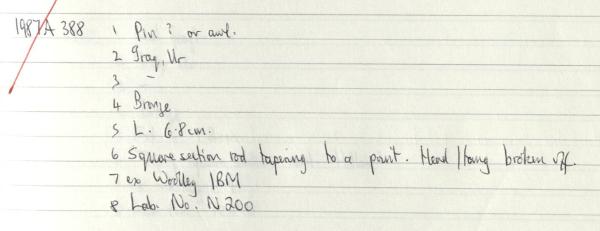 1987A 388 1 Pin? or awl.
2 Iraq, Ur
3 -
4 Bronze
5 L. 6.8cm.
6 Square section rod tapering to a point. Head/tang broken off.
7 ex Woolley /BM
8 Lab. No. N200